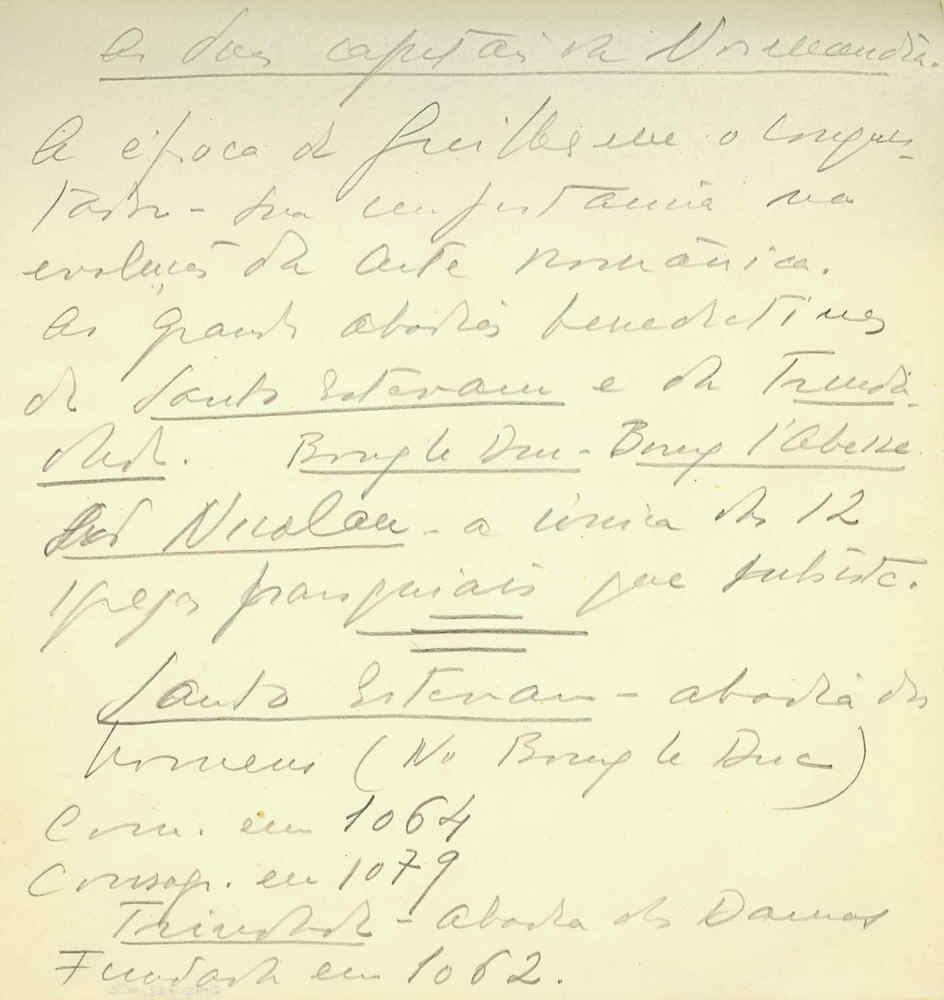 As duas capitais da Normandia.
A época de Guilherme o Conquis-
tador - sua importancia na
evolução da arte românica.
As grandes abadias benedictinas
de Santo Estevam e da Trinda-
dade. Bourg le Duc - Bourg l'Abesse
São Nicolau - a única das 12
igrejas paroquiais que subsiste.
Santo Estevam - abadia dos
homens (No Bourg le Duc)
Com. em 1064
Consagr. em 1079
Trindade - Abadia das Damas
Fundada em 1062.